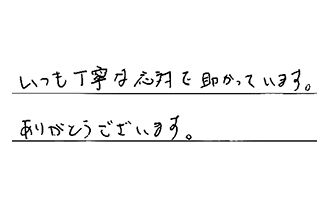 いつも丁寧な応対で助かっています。
ありがとうございます。